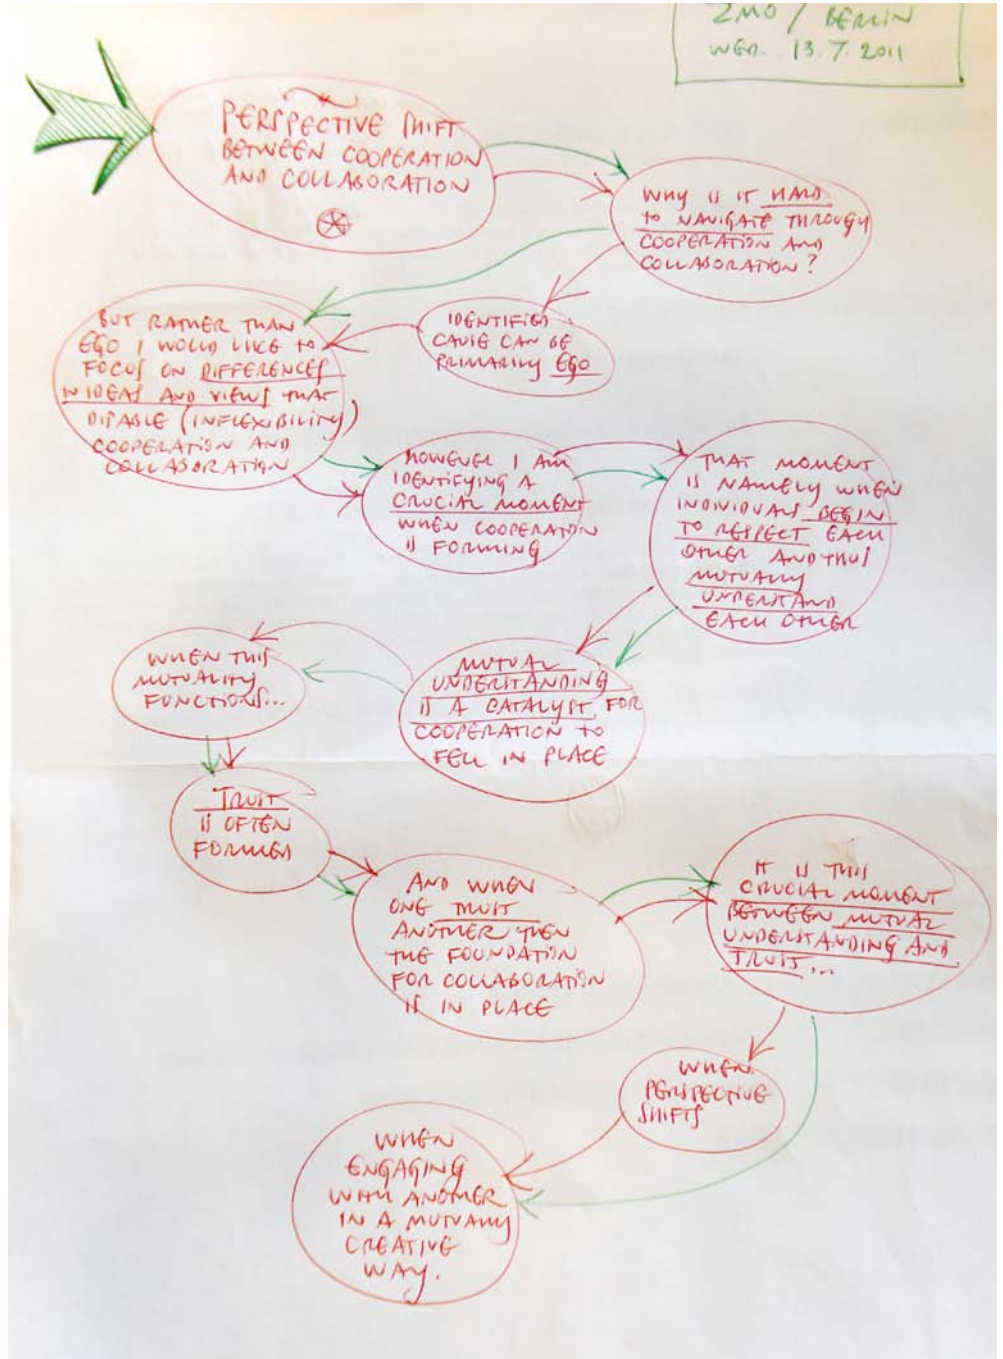 ZMO / BERLIN
WED. 13.7.2011
PERSPECTIVE SHIFT
BETWEEN COOPERATION
AND COLLABORATION
WHY IS IT HARD
TO NAVIGATE THROUGH
COOPERATION AND
COLLABORATION?
IDENTIFIED
CAUSE CAN BE
PRIMARILY EGO
BUT RATHER THAN
EGO I WOULD LIKE TO
FOCUS ON DIFFERENCES
IN IDEAS AND VIEWS THAT
DISABLE (INFLEXIBILITY)
COOPERATION AND
COLLABORATION
HOWEVER I AM
IDENTIFYING A
CRUCIAL MOMENT
WHEN COOPERATION
IS FORMING
THAT MOMENT
IS NAMELY WHEN
INDIVIDUALS BEGIN
TO RESPECT EACH
OTHER AND THUS
MUTUALLY
UNDERSTAND
EACH OTHER
MUTUAL
UNDERSTANDING
IS A CATALYST FOR
COOPERATION TO
FELL IN PLACE
WHEN THIS
MUTUALITY
FUNCTIONS...
TRUST
IS OFTEN
FORMED
AND WHEN
ONE TRUST
ANOTHER THEN
THE FOUNDATION
FOR COLLABORATION
IS IN PLACE
IT IS THIS
CRUCIAL MOMENT
BETWEEN MUTUAL
UNDERSTANDING AND
TRUST...
WHEN
PERSPECTIVE
SHIFTS
WHEN
ENGAGING
WITH ANOTHER
IN A MUTUALLY
CREATIVE
WAY.